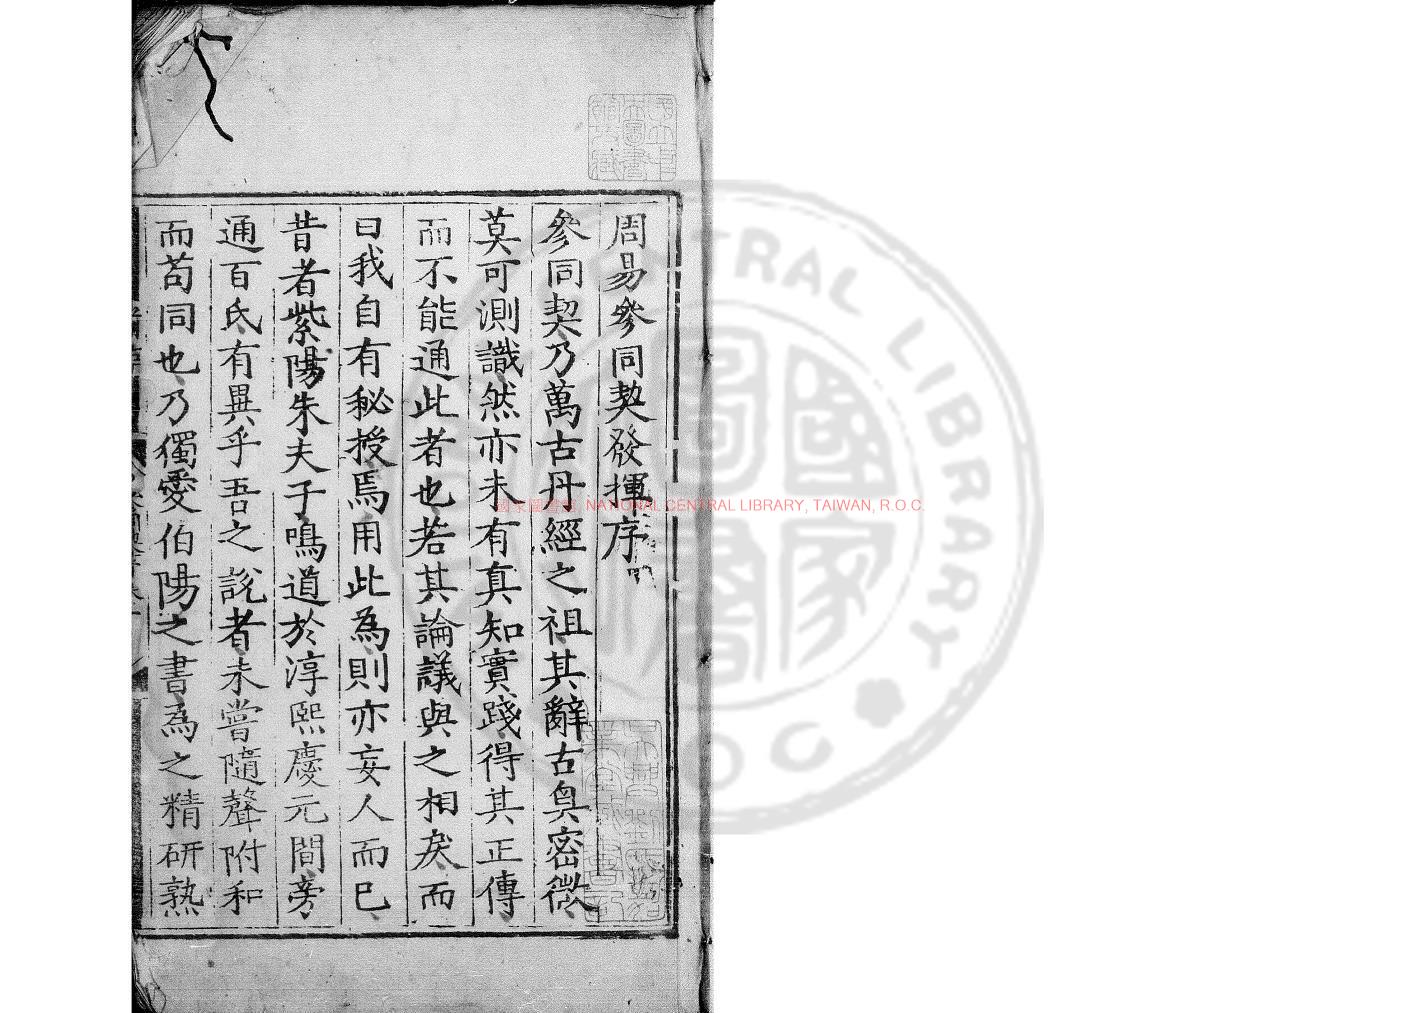 周易參同契發揮序
參同契乃萬古丹經之祖其辭古奧密微
莫可測識然亦未有真知實踐得其正傳
而不能通此者也若其論議與之相戾而
曰我自有秘授焉用此為則亦妄人而已
昔者紫陽朱夫子鳴道於淳熙慶元間旁
通百氏有異乎吾之說者未嘗隨聲附和
而苟同也乃獨愛伯陽之書為之精研熟
國家圖書館 NATIONAL CENTRAL LIBRARY, TAIWAN, R.O.C.
CENTRAL LIBRARY